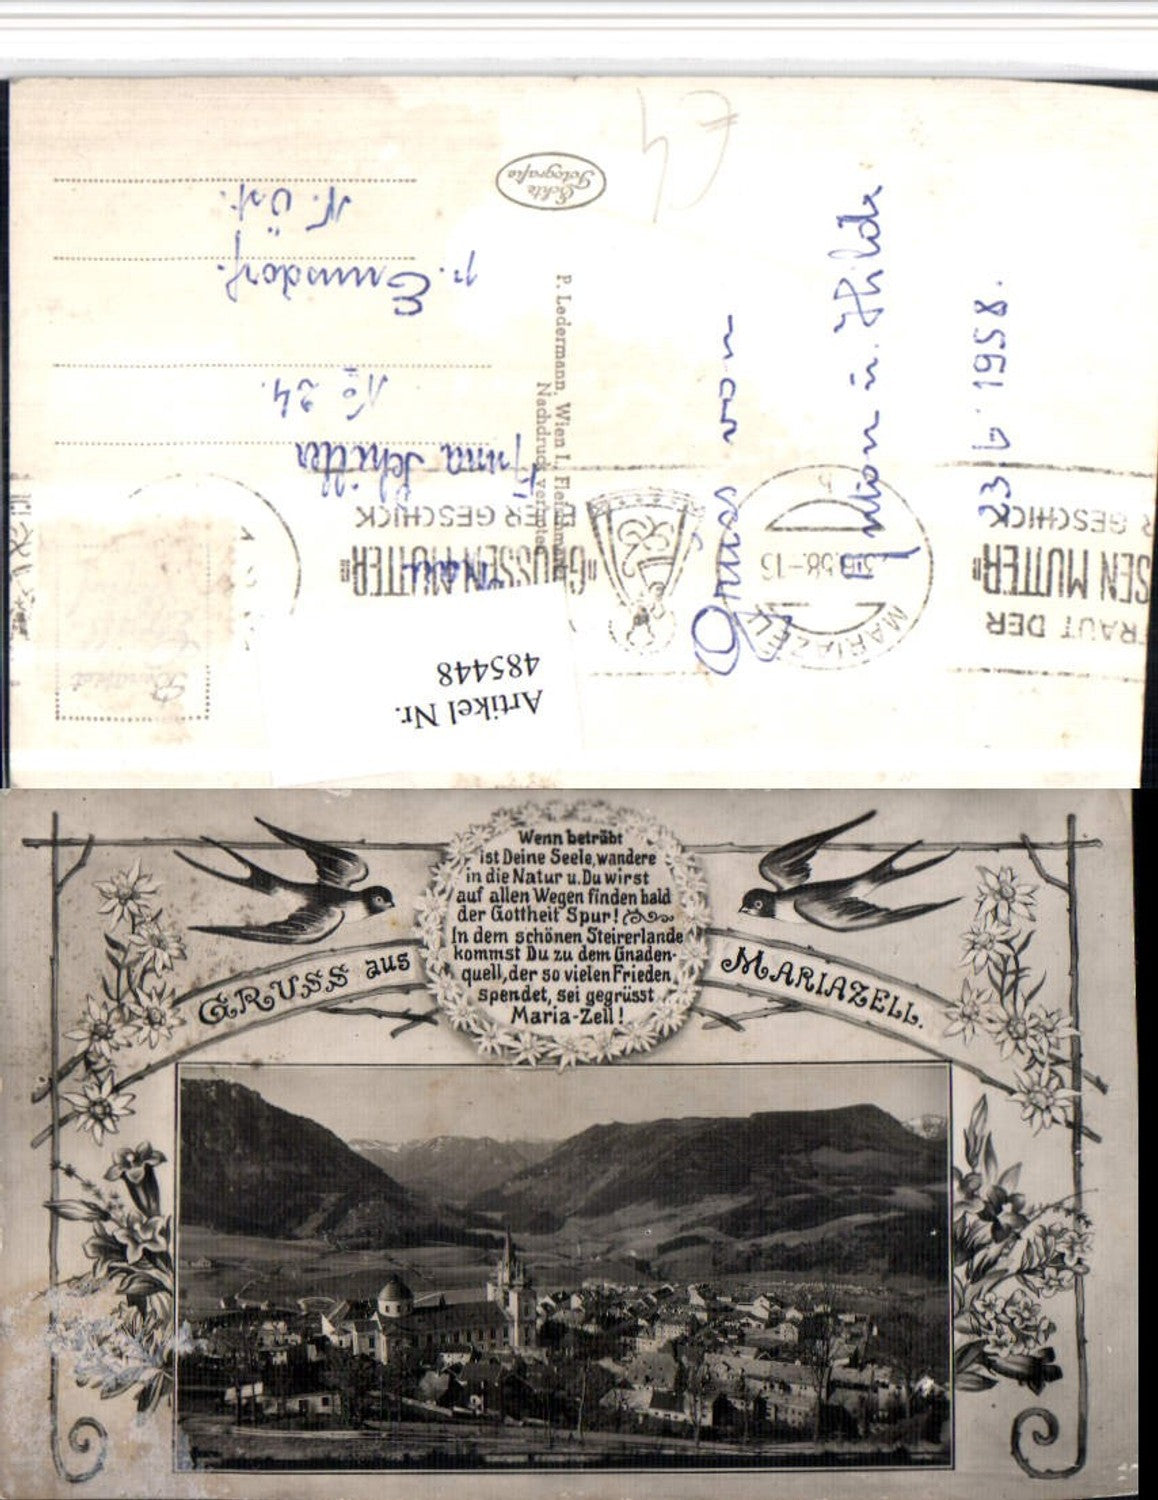 Echte
Fotografie
P. Ledermann, Wien I., Fleischmarkt
Nachdruck verboten
Artikel Nr.
485448
Schiller
No 24.
p. Ernsdorf.
N. Öst.
Gruss von
u. Hilda
23 6 1958.
MARIAZELL
58.-15
TRAUT DER
SSEN MUTTER"
R GESCHICK
"GROSSEN MUTTER"
ER GESCHICK
GRUSS aus
MARIAZELL.
Wenn betrübt
ist Deine Seele, wandere
in die Natur u. Du wirst
auf allen Wegen finden bald
der Gottheit Spur!
In dem schönen Steirerlande
kommst Du zu dem Gnaden-
quell, der so vielen Frieden
spendet, sei gegrüsst
Maria-Zell!